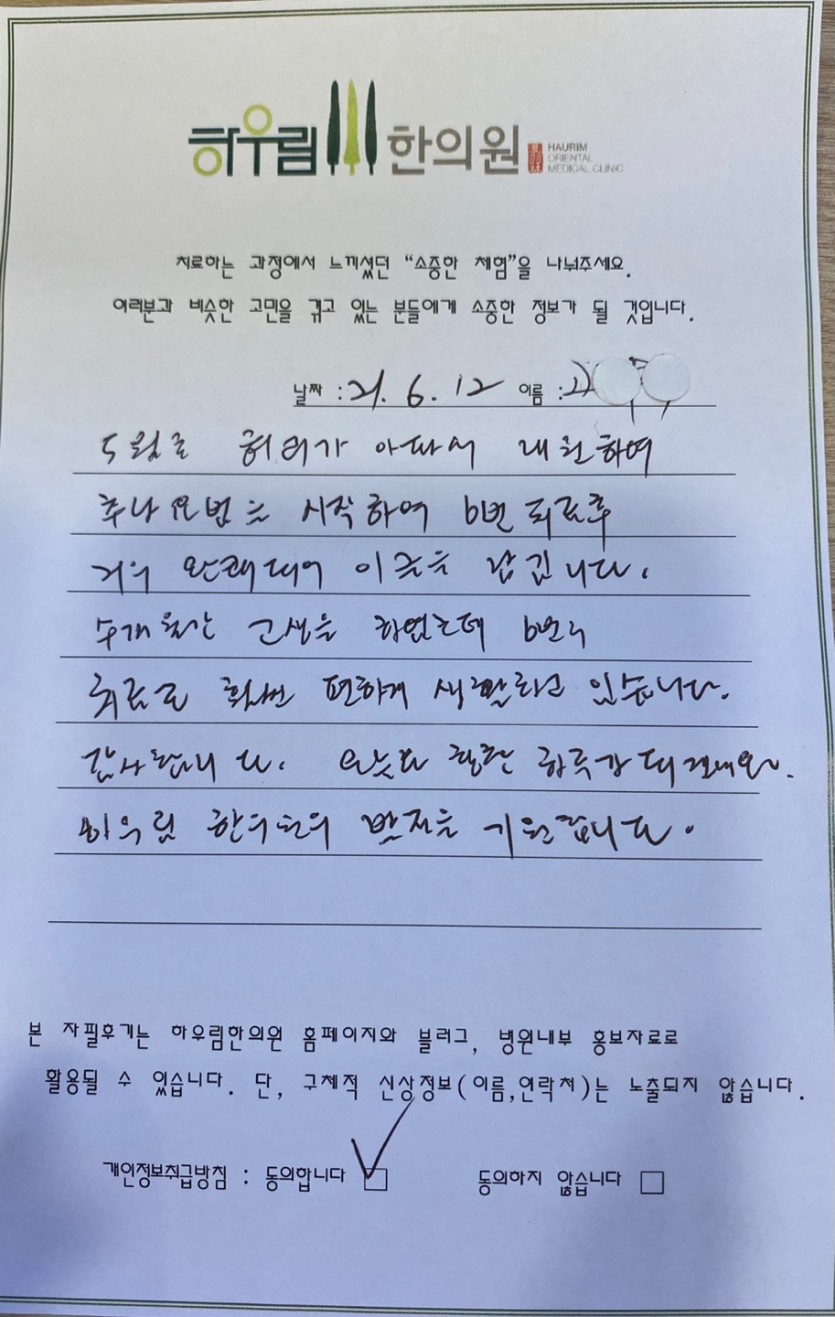 하우림 한의원
HAURIM
ORIENTAL
MEDICAL CLINIC
치료하는 과정에서 느끼셨던 “소중한 체험”을 나눠주세요.
여러분과 비슷한 고민을 겪고 있는 분들에게 소중한 정보가 될 것입니다.
날짜 : 21. 6. 12 이름 :
5월초 허리가 아파서 내원하여
추나요법을 시작하여 6번 치료후
거의 완쾌되어 이글을 남깁니다.
수개월간 고생을 하였는데 6번의
치료로 훨씬 편하게 생활하고 있습니다.
감사합니다. 오늘도 하루가 되세요.
하우림 한의원의 발전을 기원합니다.
본 자필후기는 하우림한의원 홈페이지와 블러그, 병원내부 홍보자료로
활용될 수 있습니다. 단, 구체적 신상정보(이름,연락처)는 노출되지 않습니다.
개인정보취급방침 : 동의합니다 동의하지 않습니다